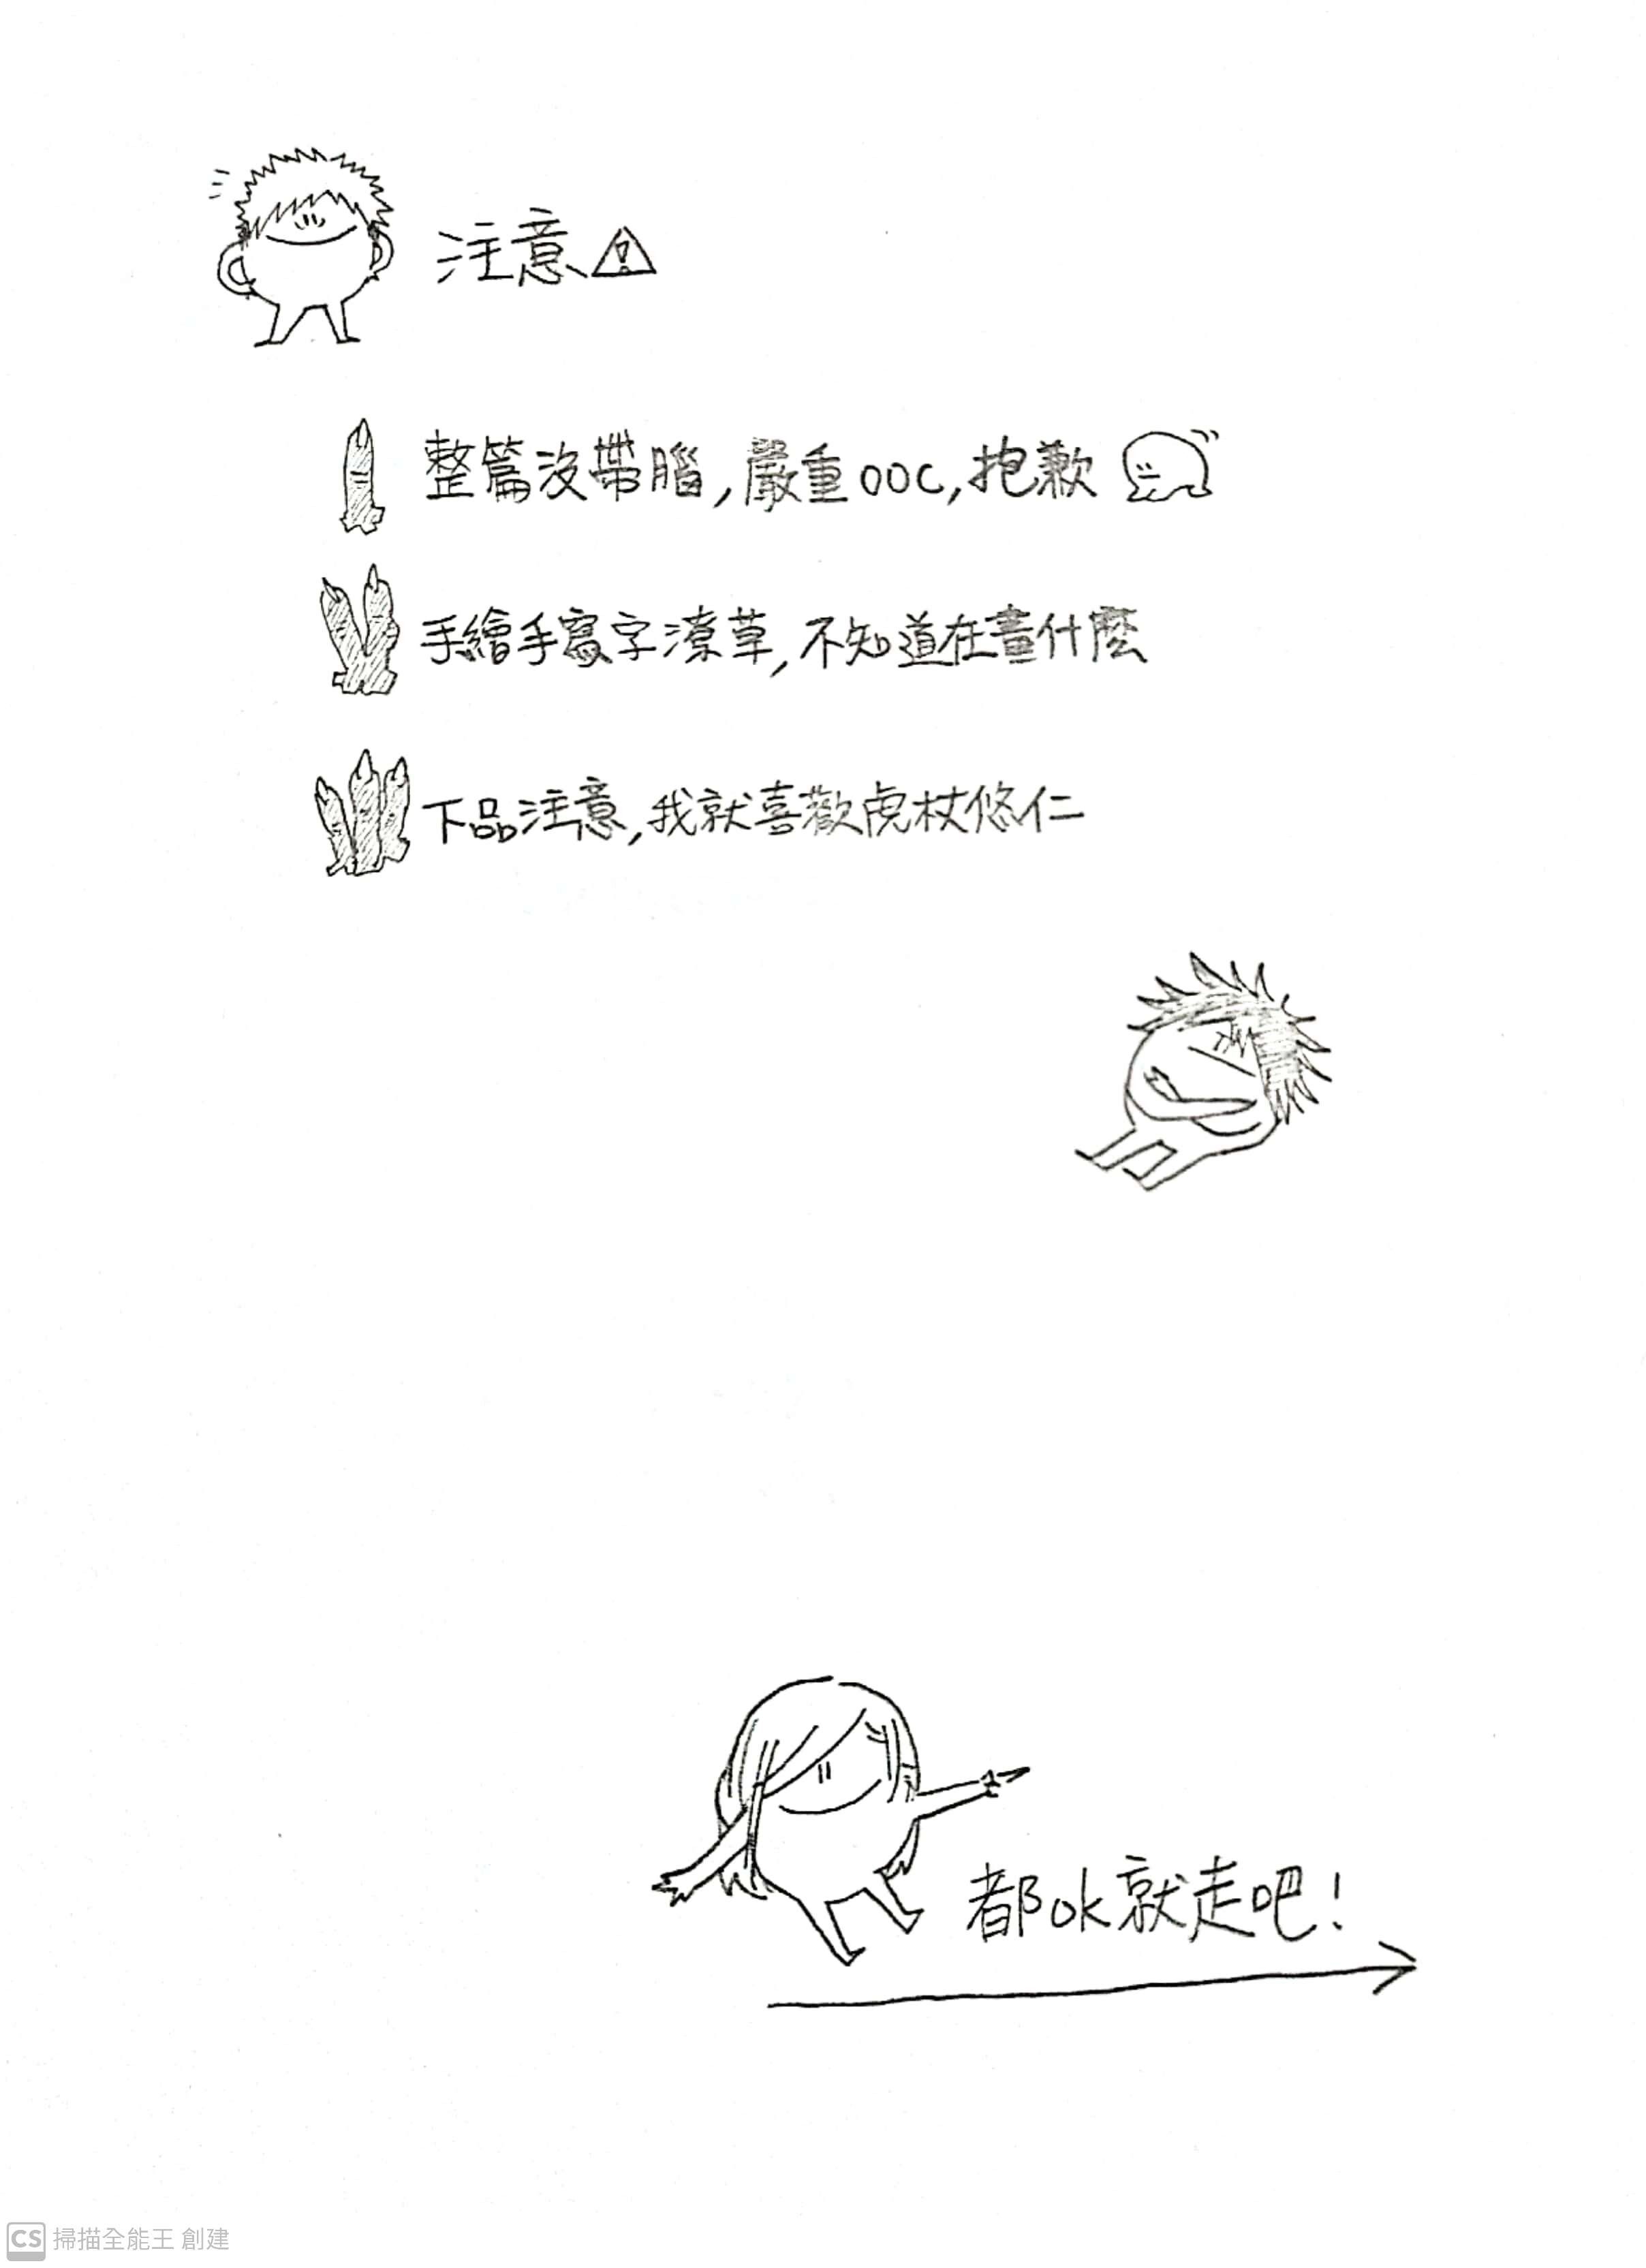 注意⚠
整篇沒帶腦,嚴重OOC,抱歉
手繪手寫字潦草,不知道在畫什麼
下品注意,我就喜歡虎杖悠仁
都ok就走吧!
CS 掃描全能王 創建